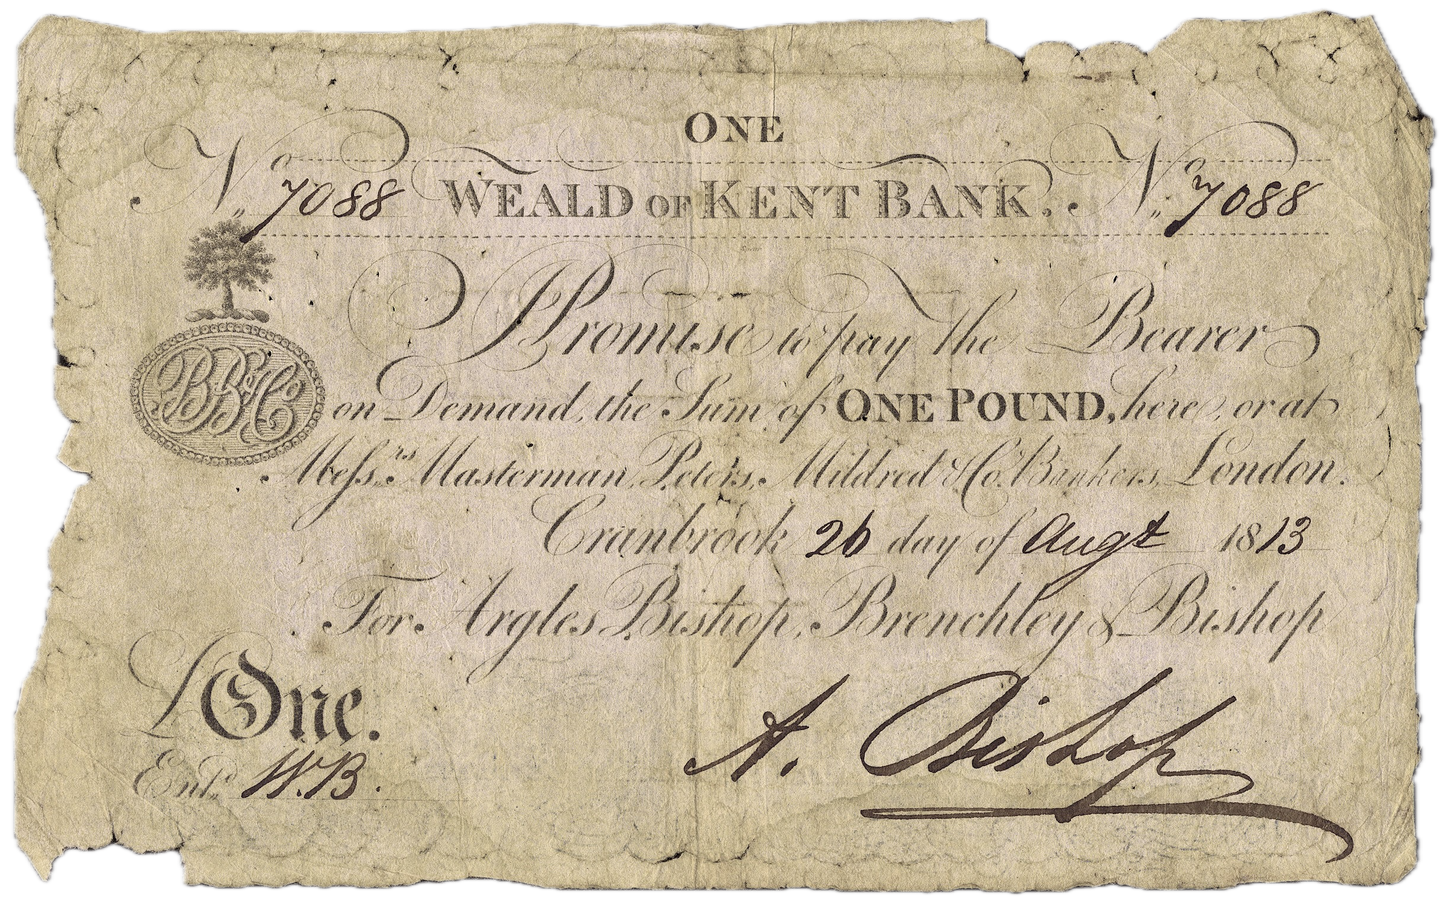 ONE
No. 7088 WEALD OF KENT BANK. No. 7088
I Promise to pay the Bearer
BB&Co
on Demand, the Sum of ONE POUND, here, or at
Messrs. Masterman, Peters, Mildred & Co. Bankers, London.
Cranbrook 26 day of Augt 1813
For Argles Bishop, Brenchley & Bishop
£One.
A. Bishop
Entd. W.B.